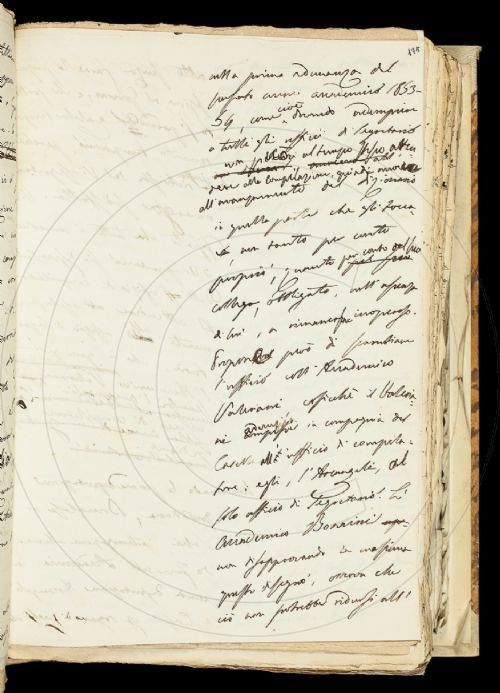 nella prima adunanza del
presente anno accademico 1853-
54, come cioè dovendo adempiere
a tutti gli uffici di Segretario
non potesse al tempo stesso atten
dere alla compilazione, quindi
all'avanzamento del Dizionario
in quella parte che gli tocca-
va, non tanto per conto
proprio, quanto per conto del suo
collega, obbligato, nell'assenza
di lui, a rimanersi inoperoso.
Propone però di scambiare
l'ufficio coll'Accademico
Valeriani affichè il Valeria-
ni in compagnia del
Casella all'ufficio di compila-
tore: egli, l'Arcangeli, al
solo ufficio di Segretario. L'
Accademico Bonaini
non disapprovando in massima
questo disegno, osserva che
ciò non potrebbe ridursi all'